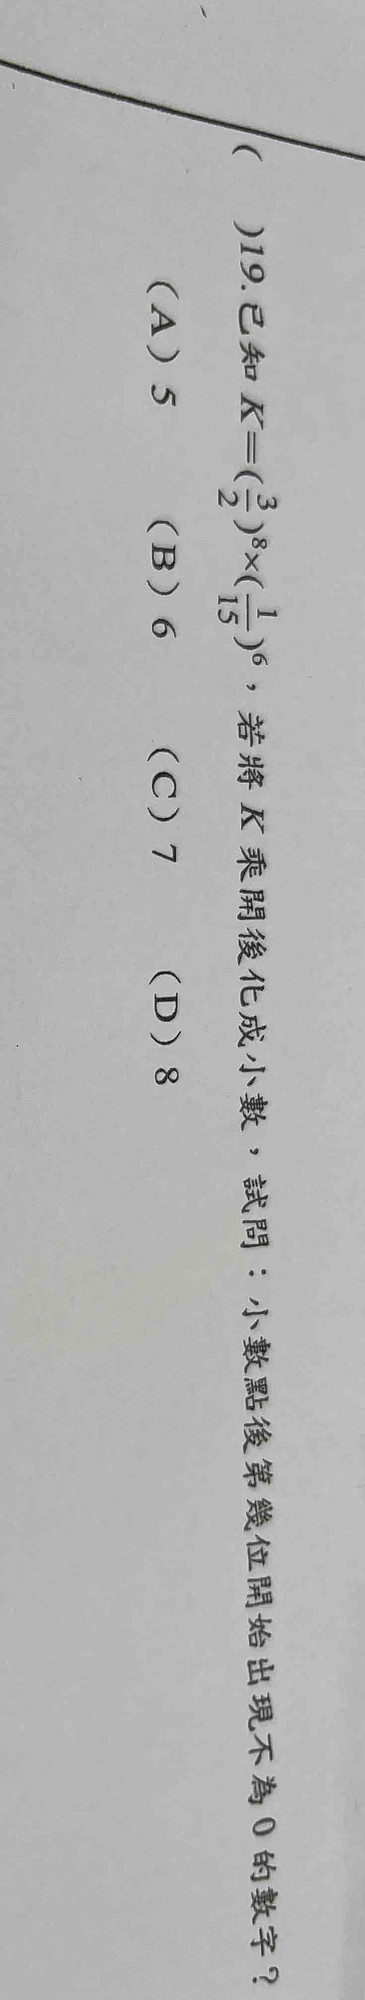 (　)19.已知 K=(3/2)⁸×(1/15)⁶，若將 K 乘開後化成小數，試問：小數點後第幾位開始出現不為 0 的數字？
(A) 5　(B) 6　(C) 7　(D) 8